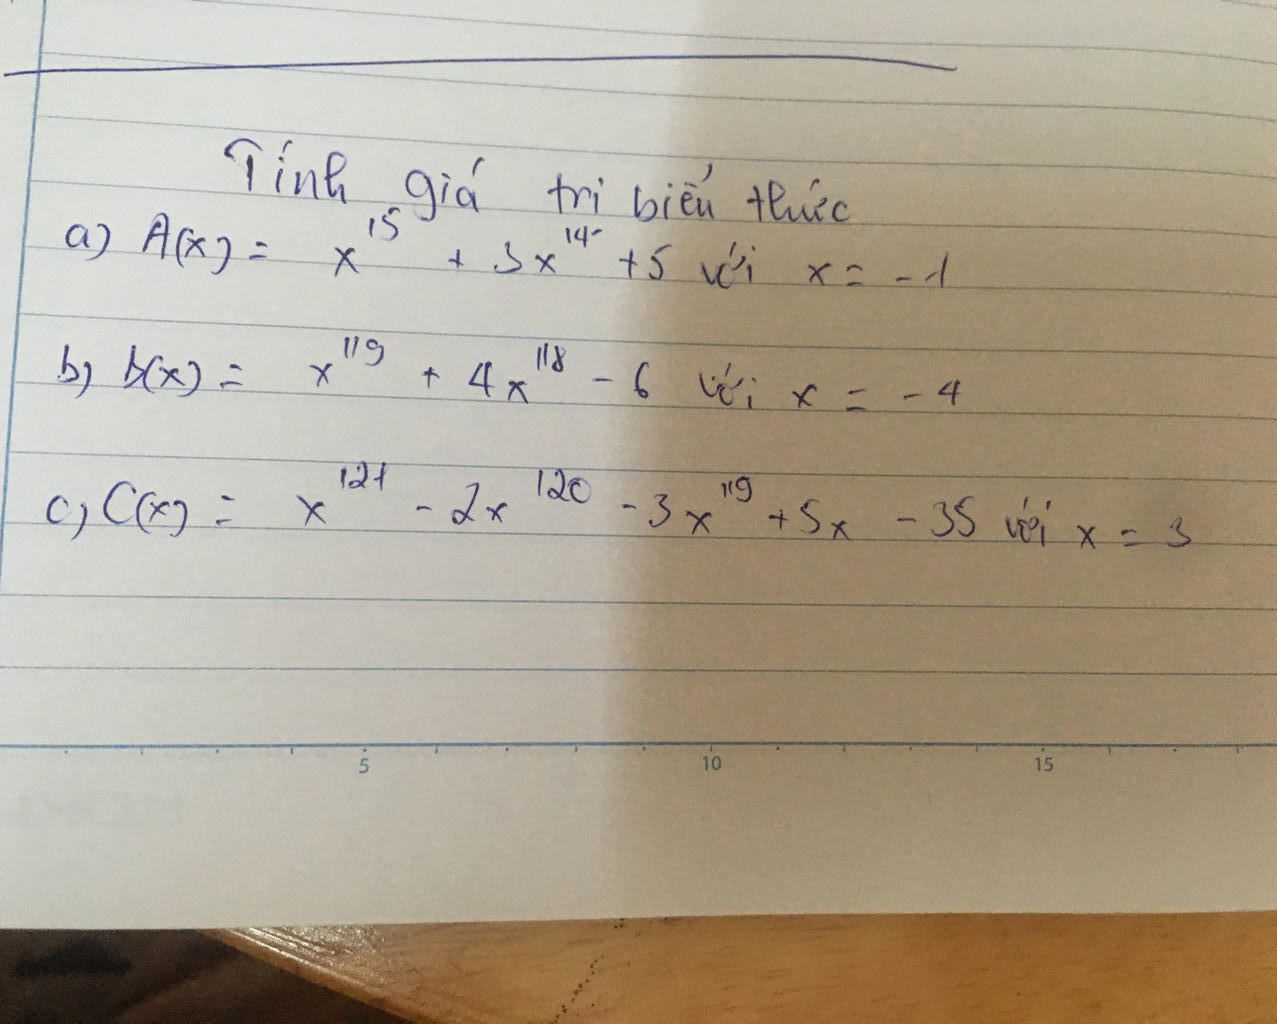 Tính giá trị biếu thức
a) A(x) = x¹⁵ + 3x¹⁴ + 5 với x = -1
b) b(x) = x¹¹⁹ + 4x¹¹⁸ - 6 với x = -4
c) C(x) = x¹²¹ - 2x¹²⁰ - 3x¹¹⁹ + 5x - 35 với x = 3
5 10 15